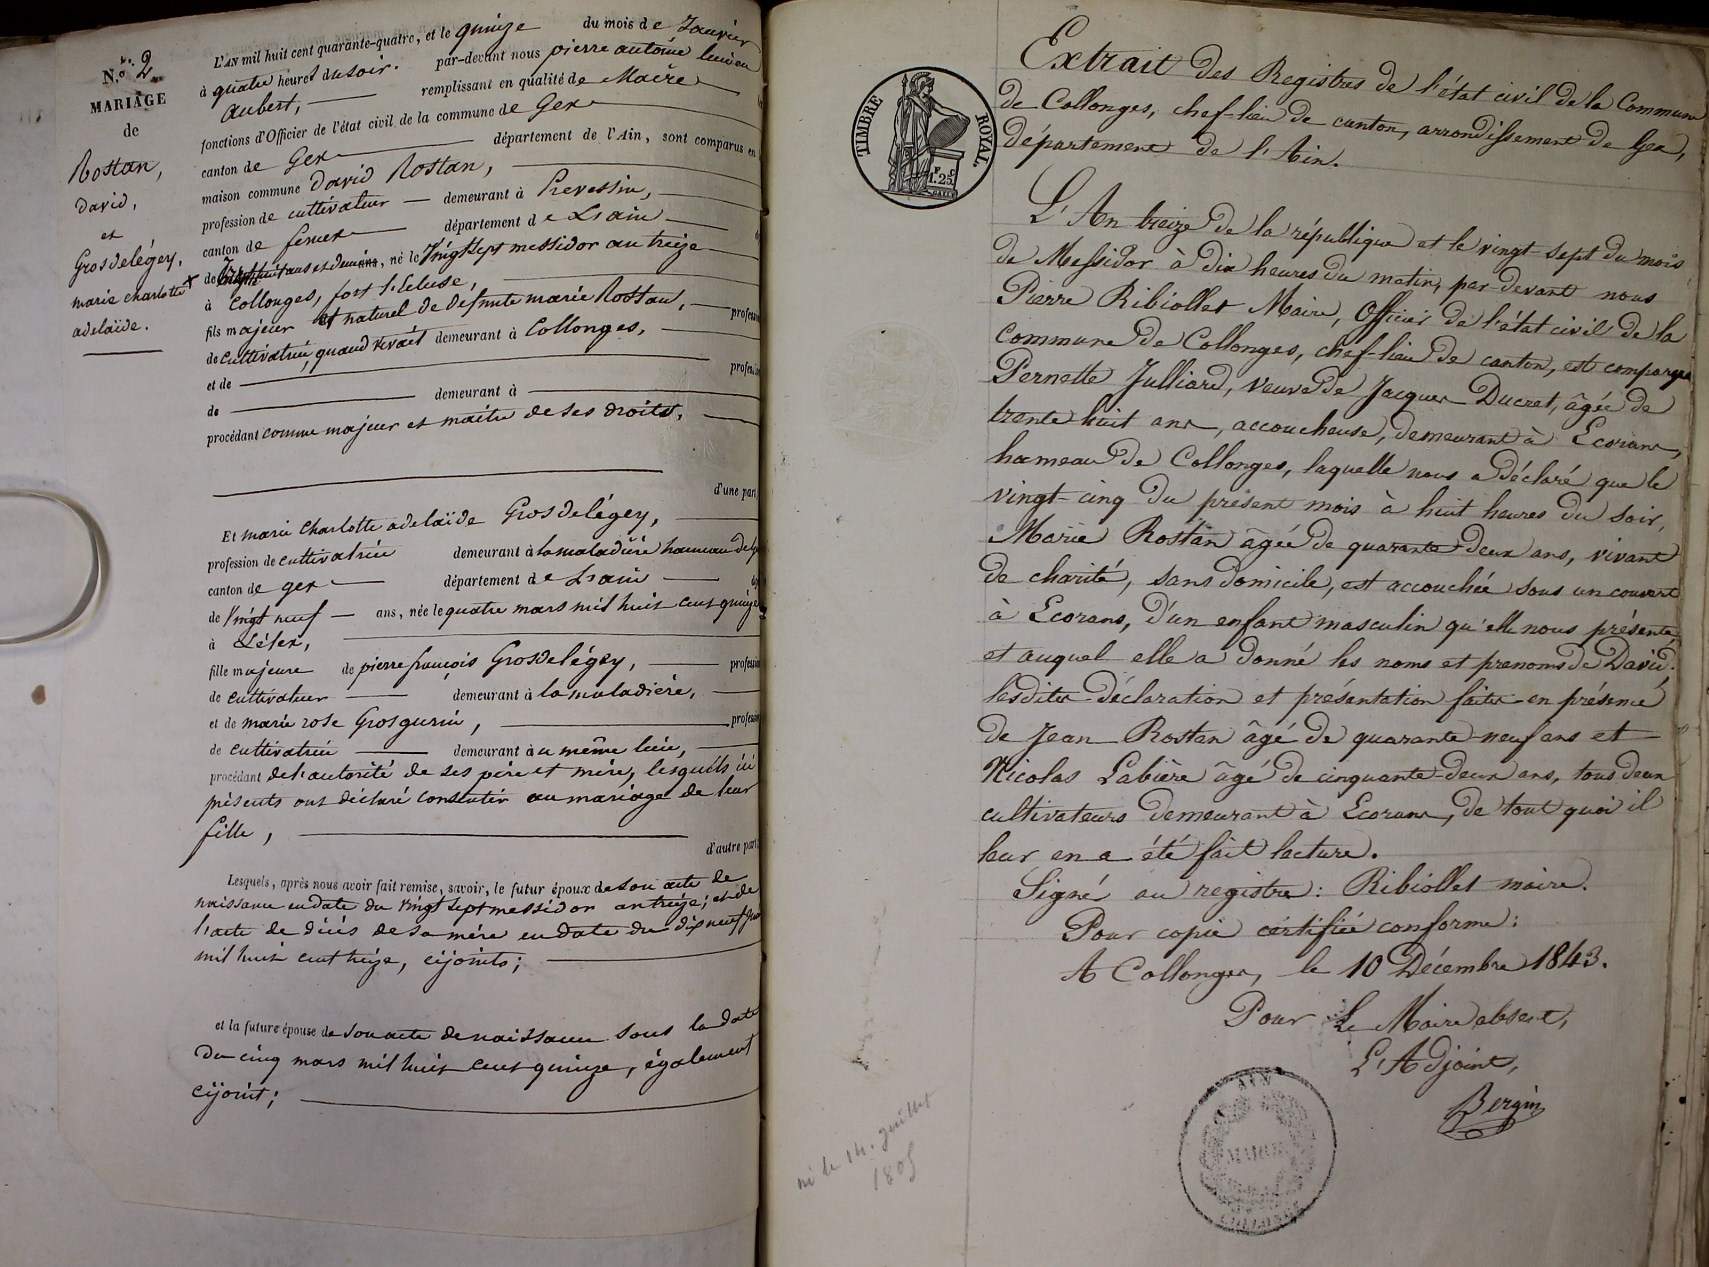 N.º 2.
MARIAGE
de
Rostan,
david,
et
Grosdelégey,
marie charlotte
adelaïde.
L'AN mil huit cent quarante-quatre, et le quinze du mois de Janvier
à quatre heures du soir. par-devant nous pierre antoine lucien
aubert, remplissant en qualité de Maire
fonctions d'Officier de l'état civil de la commune de Gex
canton de Gex département de l'Ain, sont comparus en
maison commune David Rostan,
profession de cultivateur demeurant à Prevessin,
canton de ferney département de L'ain
de ans et demi ans, né le Vingt sept messidor an treize
à Collonges, fort l'écluse,
fils majeur et naturel de defunte marie Rostan, profession
de cultivatrice, quand vivait demeurant à Collonges,
et de profession
de demeurant à
procédant comme majeur et maitre de ses droits,
d'une part,
Et marie Charlotte adelaïde Grosdelégey,
profession de cultivatrice demeurant à la maladière hameau de
canton de gex département de L'ain
de Vingt neuf ans, née le quatre mars mil huit cent quinze
à Lélex,
fille majeure de pierre françois Grosdelégey, profession
de cultivateur demeurant à la maladière,
et de marie rose Grosgurin, profession
de cultivatrice demeurant à u même lieu,
procédant de l'autorité de ses père et mère, lesquels ici
présents ont déclaré consentir au mariage de leur
fille,
d'autre part;
Lesquels, après nous avoir fait remise, savoir, le futur époux de son acte de
naissance en date du vingt sept messidor an treize; et de
l'acte de décès de sa mère en date du dix neuf
mil huit cent treize, cijoints;
et la future épouse de son acte de naissance sous la date
du cinq mars mil huit cent quinze, également
cijoint;
TIMBRE ROYAL.
1.25
Extrait des Registres de l'état civil de la Commune
de Collonges, chef-lieu de canton, arrondissement de Gex,
département de l'Ain.
L'An treize de la république et le vingt-sept du mois
de Messidor à dix heures du matin, par devant nous
Pierre Ribiollet Maire, Officier de l'état civil de la
commune de Collonges, chef-lieu de canton, est comparue
Pernette Julliard, veuve de Jacques Ducret, âgée de
trente huit ans, accoucheuse, demeurant à Ecorans,
hameau de Collonges, laquelle nous a déclaré que le
vingt-cinq du présent mois à huit heures du soir,
Marie Rostan âgée de quarante-deux ans, vivant
de charité, sans domicile, est accouchée sous un couvert
à Ecorans, d'un enfant masculin qu'elle nous présente
et auquel elle a donné les noms et prenoms de David;
lesdites déclaration et présentation faites en présence
de Jean Rostan âgé de quarante-neuf ans et
Nicolas Labière âgé de cinquante-deux ans, tous deux
cultivateurs demeurant à Ecorans, de tout quoi il
leur en a été fait lecture.
Signé au registre: Ribiollet maire.
Pour copie certifiée conforme:
A Collonges, le 10 Décembre 1843.
Pour Le Maire absent,
L'Adjoint,
Bergin
AIN
MAIRIE
COLLONGES
né le 14. Juillet
1805